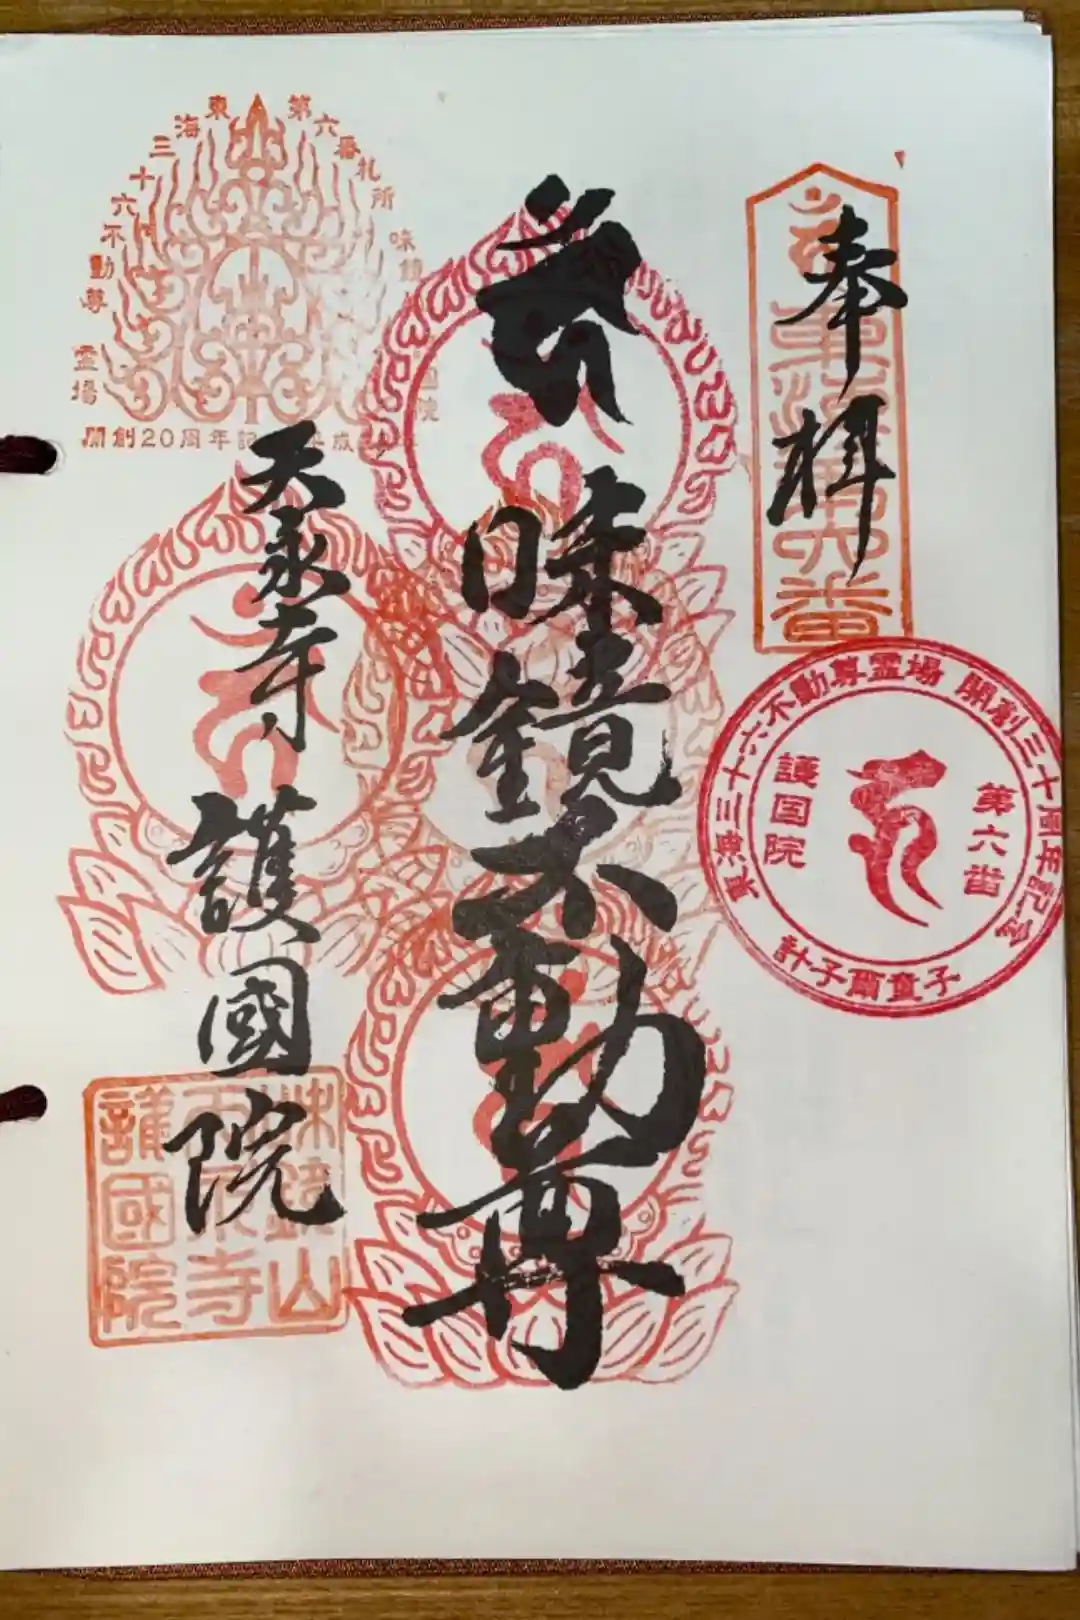 奉拝
味鏡不動尊
天永寺
護國院
東海三十六不動尊霊場
第六番札所
開創20周年記
東海三十六不動尊霊場 開創三十周年記念
第六番
護国院
計子爾童子
味鏡山
天永寺
護國院